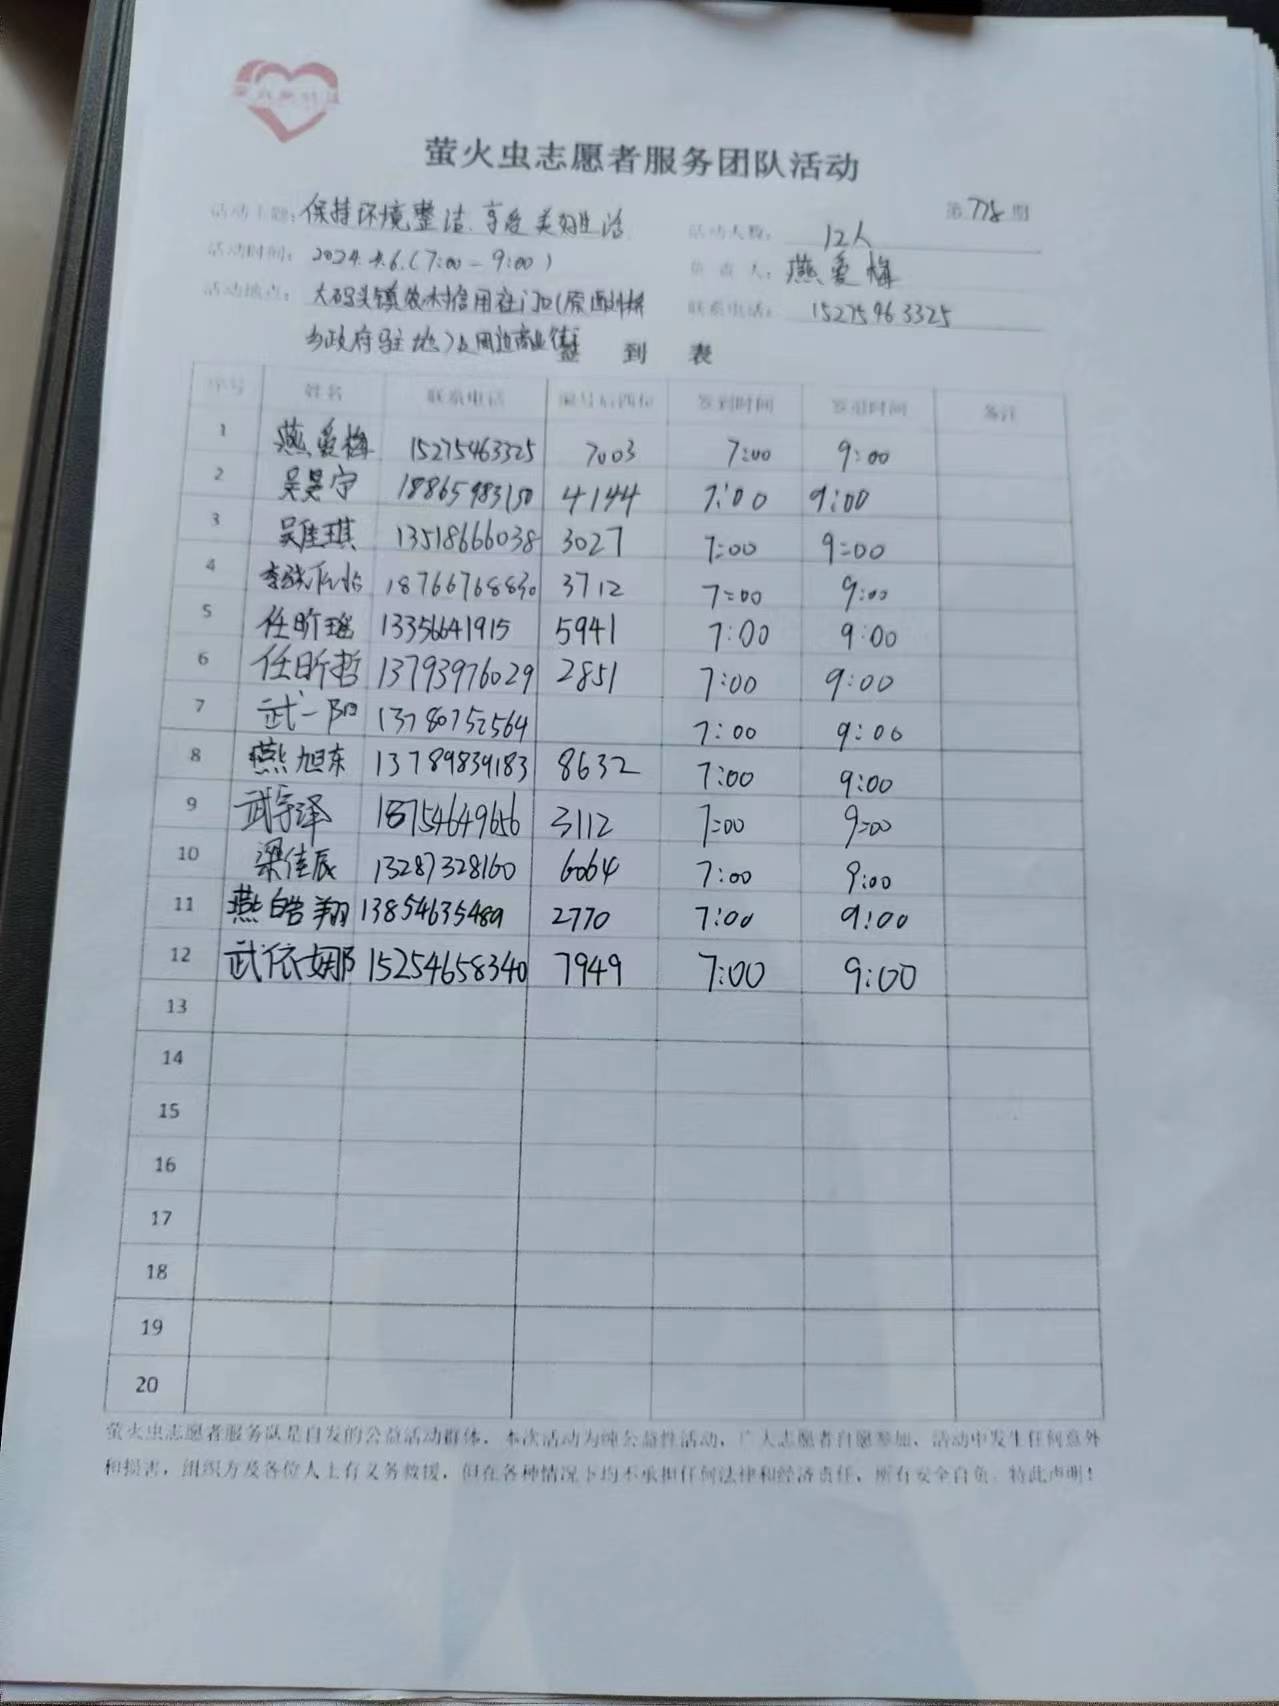 萤火虫志愿者服务团队活动
第778期
活动主题：保持环境整洁.享受美好生活
活动人数：12人
活动时间：2024.4.6.(7:00-9:00)
负责人：燕爱梅
活动地点：大码头镇农村信用社门口(原西刘桥
联系电话：15275463325
乡政府驻地)及周边商业街
签 到 表
序号 姓名 联系电话 编号后四位 签到时间 签退时间 备注
1 燕爱梅 15275463325 7003 7:00 9:00
2 吴昊宁 18865983150 4144 7:00 9:00
3 吴佳琪 13518666038 3027 7:00 9:00
4 18766768830 3712 7:00 9:00
5 任昕瑶 13356641915 5941 7:00 9:00
6 任昕哲 13793976029 2851 7:00 9:00
7 武一阳 13780752564 7:00 9:00
8 燕旭东 13789839183 8632 7:00 9:00
9 武宇泽 18754649656 3112 7:00 9:00
10 梁佳辰 13287328160 6064 7:00 9:00
11 燕皓翔 13854635489 2770 7:00 9:00
12 武依娜 15254658340 7949 7:00 9:00
13
14
15
16
17
18
19
20
萤火虫志愿者服务队是自发的公益活动群体，本次活动为纯公益性活动，广大志愿者自愿参加，活动中发生任何意外
和损害，组织方及各位人士有义务救援，但在各种情况下均不承担任何法律和经济责任，所有安全自负。特此声明！